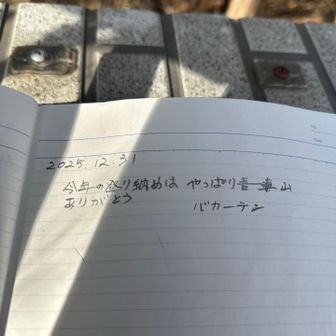 2025.12.31
今年の登り納めは やっぱり吾妻山
ありがとう バカーテン